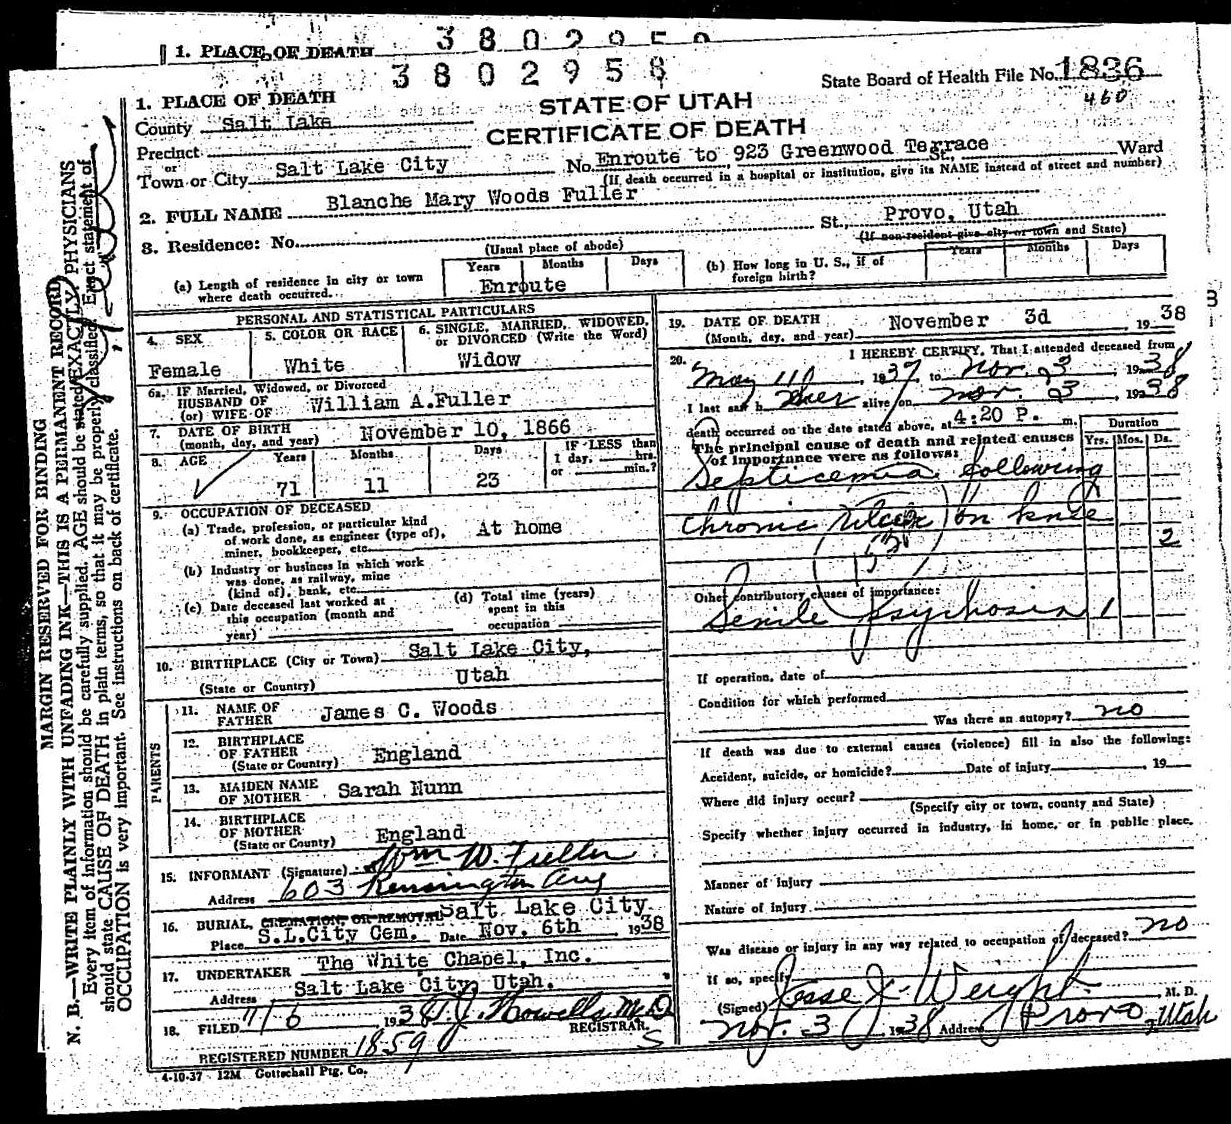 1. PLACE OF DEATH
3 8 0 2 9 5 8
3 8 0 2 9 5 8
State Board of Health File No. 1836
460
1. PLACE OF DEATH
STATE OF UTAH
County Salt Lake
CERTIFICATE OF DEATH
Precinct
or
Town or City Salt Lake City No. Enroute to 923 Greenwood Terrace St., Ward
(If death occurred in a hospital or institution, give its NAME instead of street and number)
2. FULL NAME Blanche Mary Woods Fuller
3. Residence: No. St., Provo, Utah
(Usual place of abode) (If non-resident give city or town and State)
(a) Length of residence in city or town where death occurred... Years Months Days
Enroute
(b) How long in U. S., if of foreign birth? Years Months Days
PERSONAL AND STATISTICAL PARTICULARS
4. SEX 5. COLOR OR RACE 6. SINGLE, MARRIED, WIDOWED, or DIVORCED (Write the Word)
Female White Widow
6a. IF Married, Widowed, or Divorced
HUSBAND OF
(or) WIFE OF William A.Fuller
7. DATE OF BIRTH
(month, day, and year) November 10, 1866
8. AGE Years Months Days IF LESS than 1 day, hrs. or min.?
71 11 23
9. OCCUPATION OF DECEASED
(a) Trade, profession, or particular kind of work done, as engineer (type of), miner, bookkeeper, etc. At home
(b) Industry or business in which work was done, as railway, mine (kind of), bank, etc.
(c) Date deceased last worked at this occupation (month and year)
(d) Total time (years) spent in this occupation
10. BIRTHPLACE (City or Town) Salt Lake City,
(State or Country) Utah
PARENTS
11. NAME OF FATHER James C. Woods
12. BIRTHPLACE OF FATHER
(State or Country) England
13. MAIDEN NAME OF MOTHER Sarah Nunn
14. BIRTHPLACE OF MOTHER
(State or County) England
15. INFORMANT (Signature) Wm W. Fuller
Address 603 Kensington Ave
16. BURIAL, CREMATION, OR REMOVAL Salt Lake City
Place S.L.City Cem. Date Nov. 6th 1938
17. UNDERTAKER The White Chapel, Inc.
Address Salt Lake City, Utah.
18. FILED 11/6 1938 T.J. Howells M.D.
REGISTRAR.
S
REGISTERED NUMBER 1859
4-10-37 12M Gottschall Ptg. Co.
19. DATE OF DEATH
(Month, day, and year) November 3d 1938
20. I HEREBY CERTIFY, That I attended deceased from
May 1937, to Nov. 3, 1938
I last saw her alive on Nov. 3, 1938
death occurred on the date stated above, at 4:20 P. m.
The principal cause of death and related causes of importance were as follows:
Duration
Yrs. Mos. Ds.
Septicemia following
Chronic Ulcer on knee
153
2
Other contributory causes of importance:
Senile psychosis 1
If operation, date of
Condition for which performed
Was there an autopsy? no
If death was due to external causes (violence) fill in also the following:
Accident, suicide, or homicide? Date of injury , 19
Where did injury occur?
(Specify city or town, county and State)
Specify whether injury occurred in industry, in home, or in public place.
Manner of injury
Nature of injury
Was disease or injury in any way related to occupation of deceased? no
If so, specify
(Signed) Jesse J. Weight M. D.
Nov. 3 1938 Address Provo, Utah
MARGIN RESERVED FOR BINDING
N. B.—WRITE PLAINLY WITH UNFADING INK—THIS IS A PERMANENT RECORD
Every item of information should be carefully supplied. AGE should be stated EXACTLY. PHYSICIANS
should state CAUSE OF DEATH in plain terms, so that it may be properly classified. Exact statement of
OCCUPATION is very important. See instructions on back of certificate.